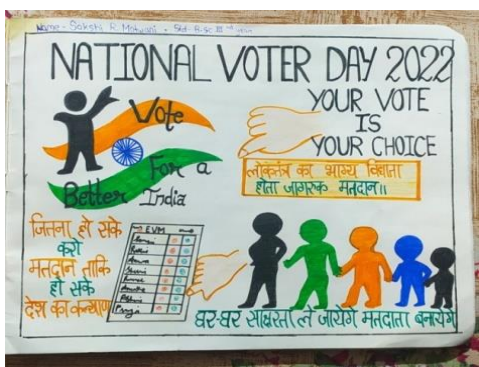 Name - Sakshi R. Motwani - Std - B.Sc III rd year
NATIONAL VOTER DAY 2022
Vote
For a
Better India
YOUR VOTE
IS
YOUR CHOICE
लोकतंत्र का भाग्य विधाता
होता जागरूक मतदाता॥
जितना हो सके
करो
मतदान ताकि
हो सके
देश का कल्याण
EVM
घर-घर साक्षरता ले जायेंगे मतदाता बनायेंगे